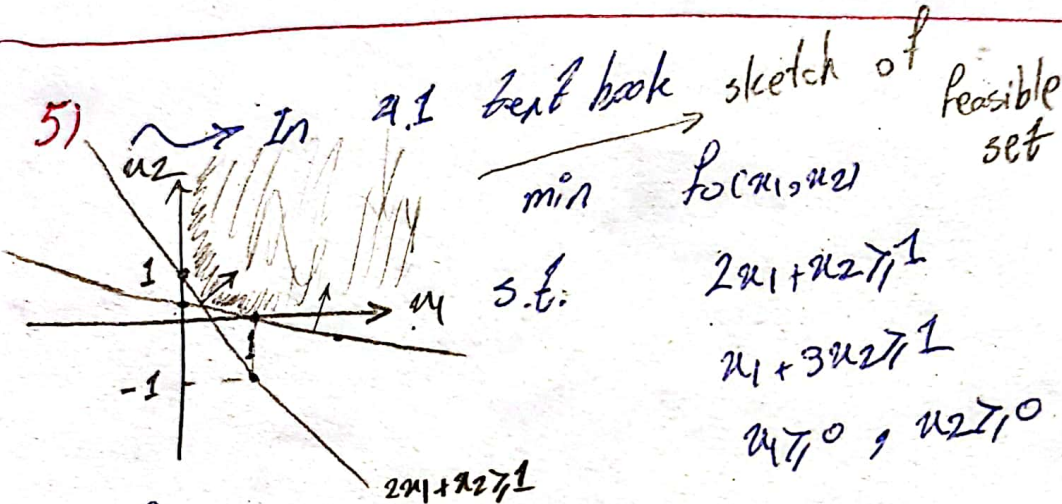 5) In 4.1 text book sketch of feasible set
min fo(x1,x2)
s.t. 2x1+x2≥1
x1+3x2≥1
x1≥0 , x2≥0
x2
1
x1
1
-1
2x1+x2≥1